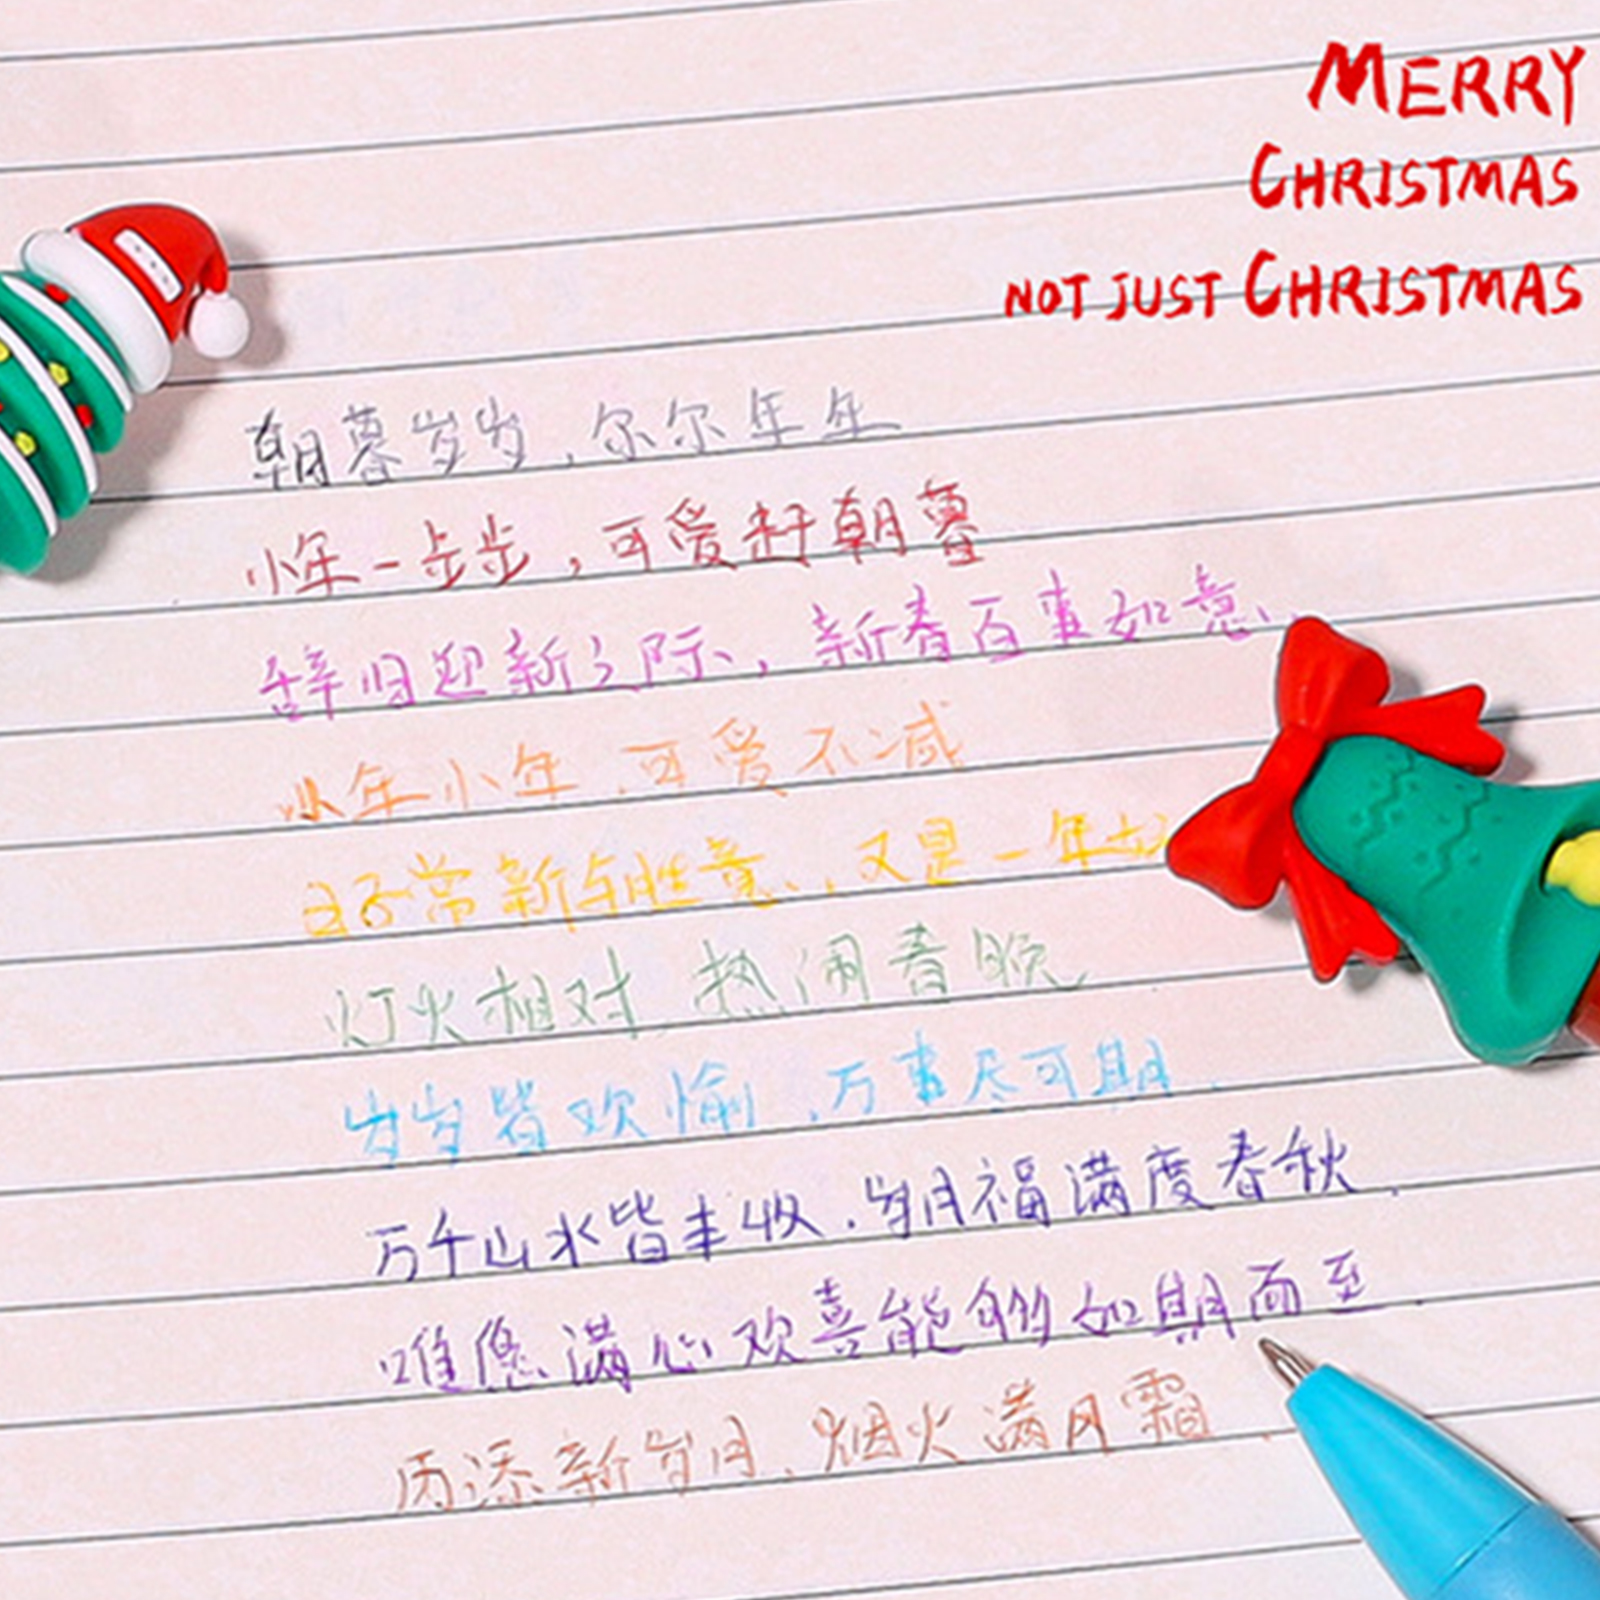 MERRY
CHRISTMAS
NOT JUST CHRISTMAS
朝暮岁岁，尔尔年年
小年一步步，可爱赶朝暮
辞旧迎新之际，新春百事如意
小年小年，可爱不减
常新与胜意，又是一年
灯火相对，热闹春晚
岁岁皆欢愉，万事尽可期
万千山水皆丰收，岁月福满度春秋
唯愿满心欢喜能够如期而至
历添新岁月，烟火满月霜